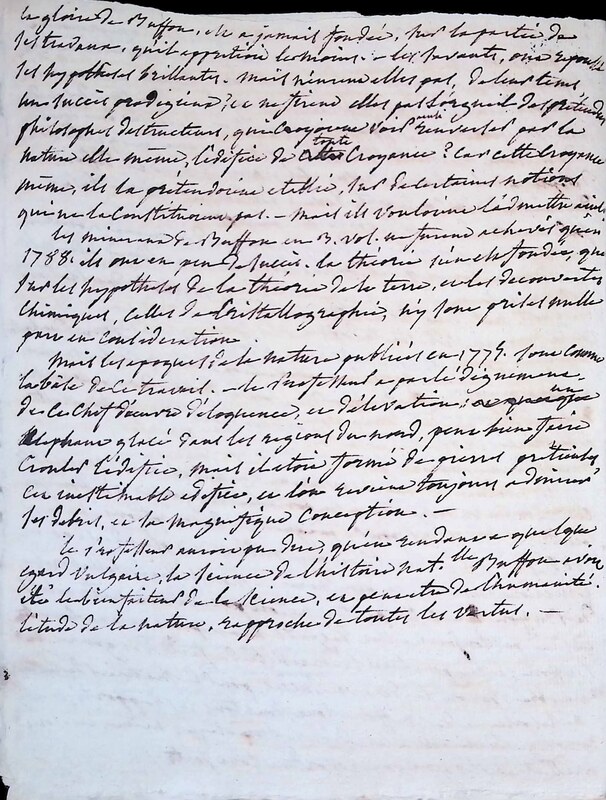 la gloire de Buffon, est a jamais fondée, sur la partie de
ses travaux, qu'il apprétioit le moins. – les savants, ont repoussé
ses hypothèses brillantes. mais n'eurent elles pas, de leur tems,
un succès prodigieux? ce ne furent elles pas l'orgueil des prétendus
philosophes destructeurs, qui croyoient voir renverser par la
nature elle même, l'édifice de toute croyance? car cette croyance
même, ils la prétendoient établie, sur de certaines notions
qui ne la constituoient pas. – mais ils vouloient l'admettre ainsi.
les mineraux de Buffon en 5. vol. ne furent achevés qu'en
1788. ils ont eu peu de succès. la théorie n'en est fondée, que
sur les hypothèses de la théorie de la terre, et les découvertes
chimiques, celles de cristallographie, n'y sont prises nulle
part en considération.
Mais les epoques de la nature publiés en 1779. sont comme
la base de ce travail. – le Professeur a parlé dignement
de ce chef d'œuvre d'éloquence, et d'élévation: un
elephant glacé dans les régions du nord, peut bien faire
crouler l'édifice, mais il etoit formé de pierres précieuses
cet inestimable edifice, et l'on revient toujours admirer
ses debris, et la magnifique conception. –
le Professeur auroit pu dire, qu'en rendant a quelque
egard vulgaire, la science de l'histoire nat.lle Buffon avoit
été le bienfaiteur de la science, et peut etre de l'humanité.
l'étude de la nature, rapproche de toutes les vertus. –